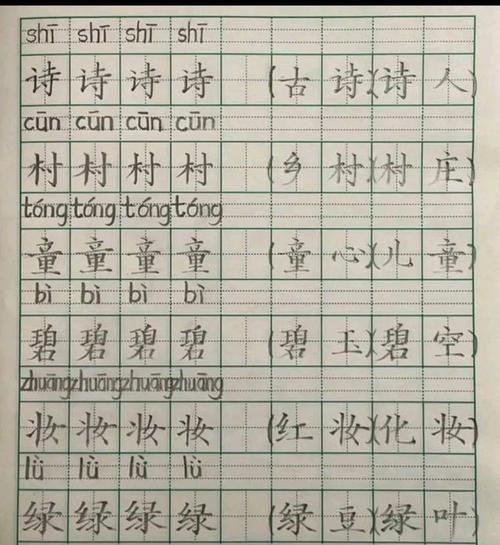 shī shī shī shī
诗 诗 诗 诗 (古 诗)(诗 人)
cūn cūn cūn cūn
村 村 村 村 (乡 村)(村 庄)
tóng tóng tóng tóng
童 童 童 童 (童 心)(儿 童)
bì bì bì bì
碧 碧 碧 碧 (碧 玉)(碧 空)
zhuāng zhuāng zhuāng zhuāng
妆 妆 妆 妆 (红 妆)(化 妆)
lǜ lǜ lǜ lǜ
绿 绿 绿 绿 (绿 豆)(绿 叶)